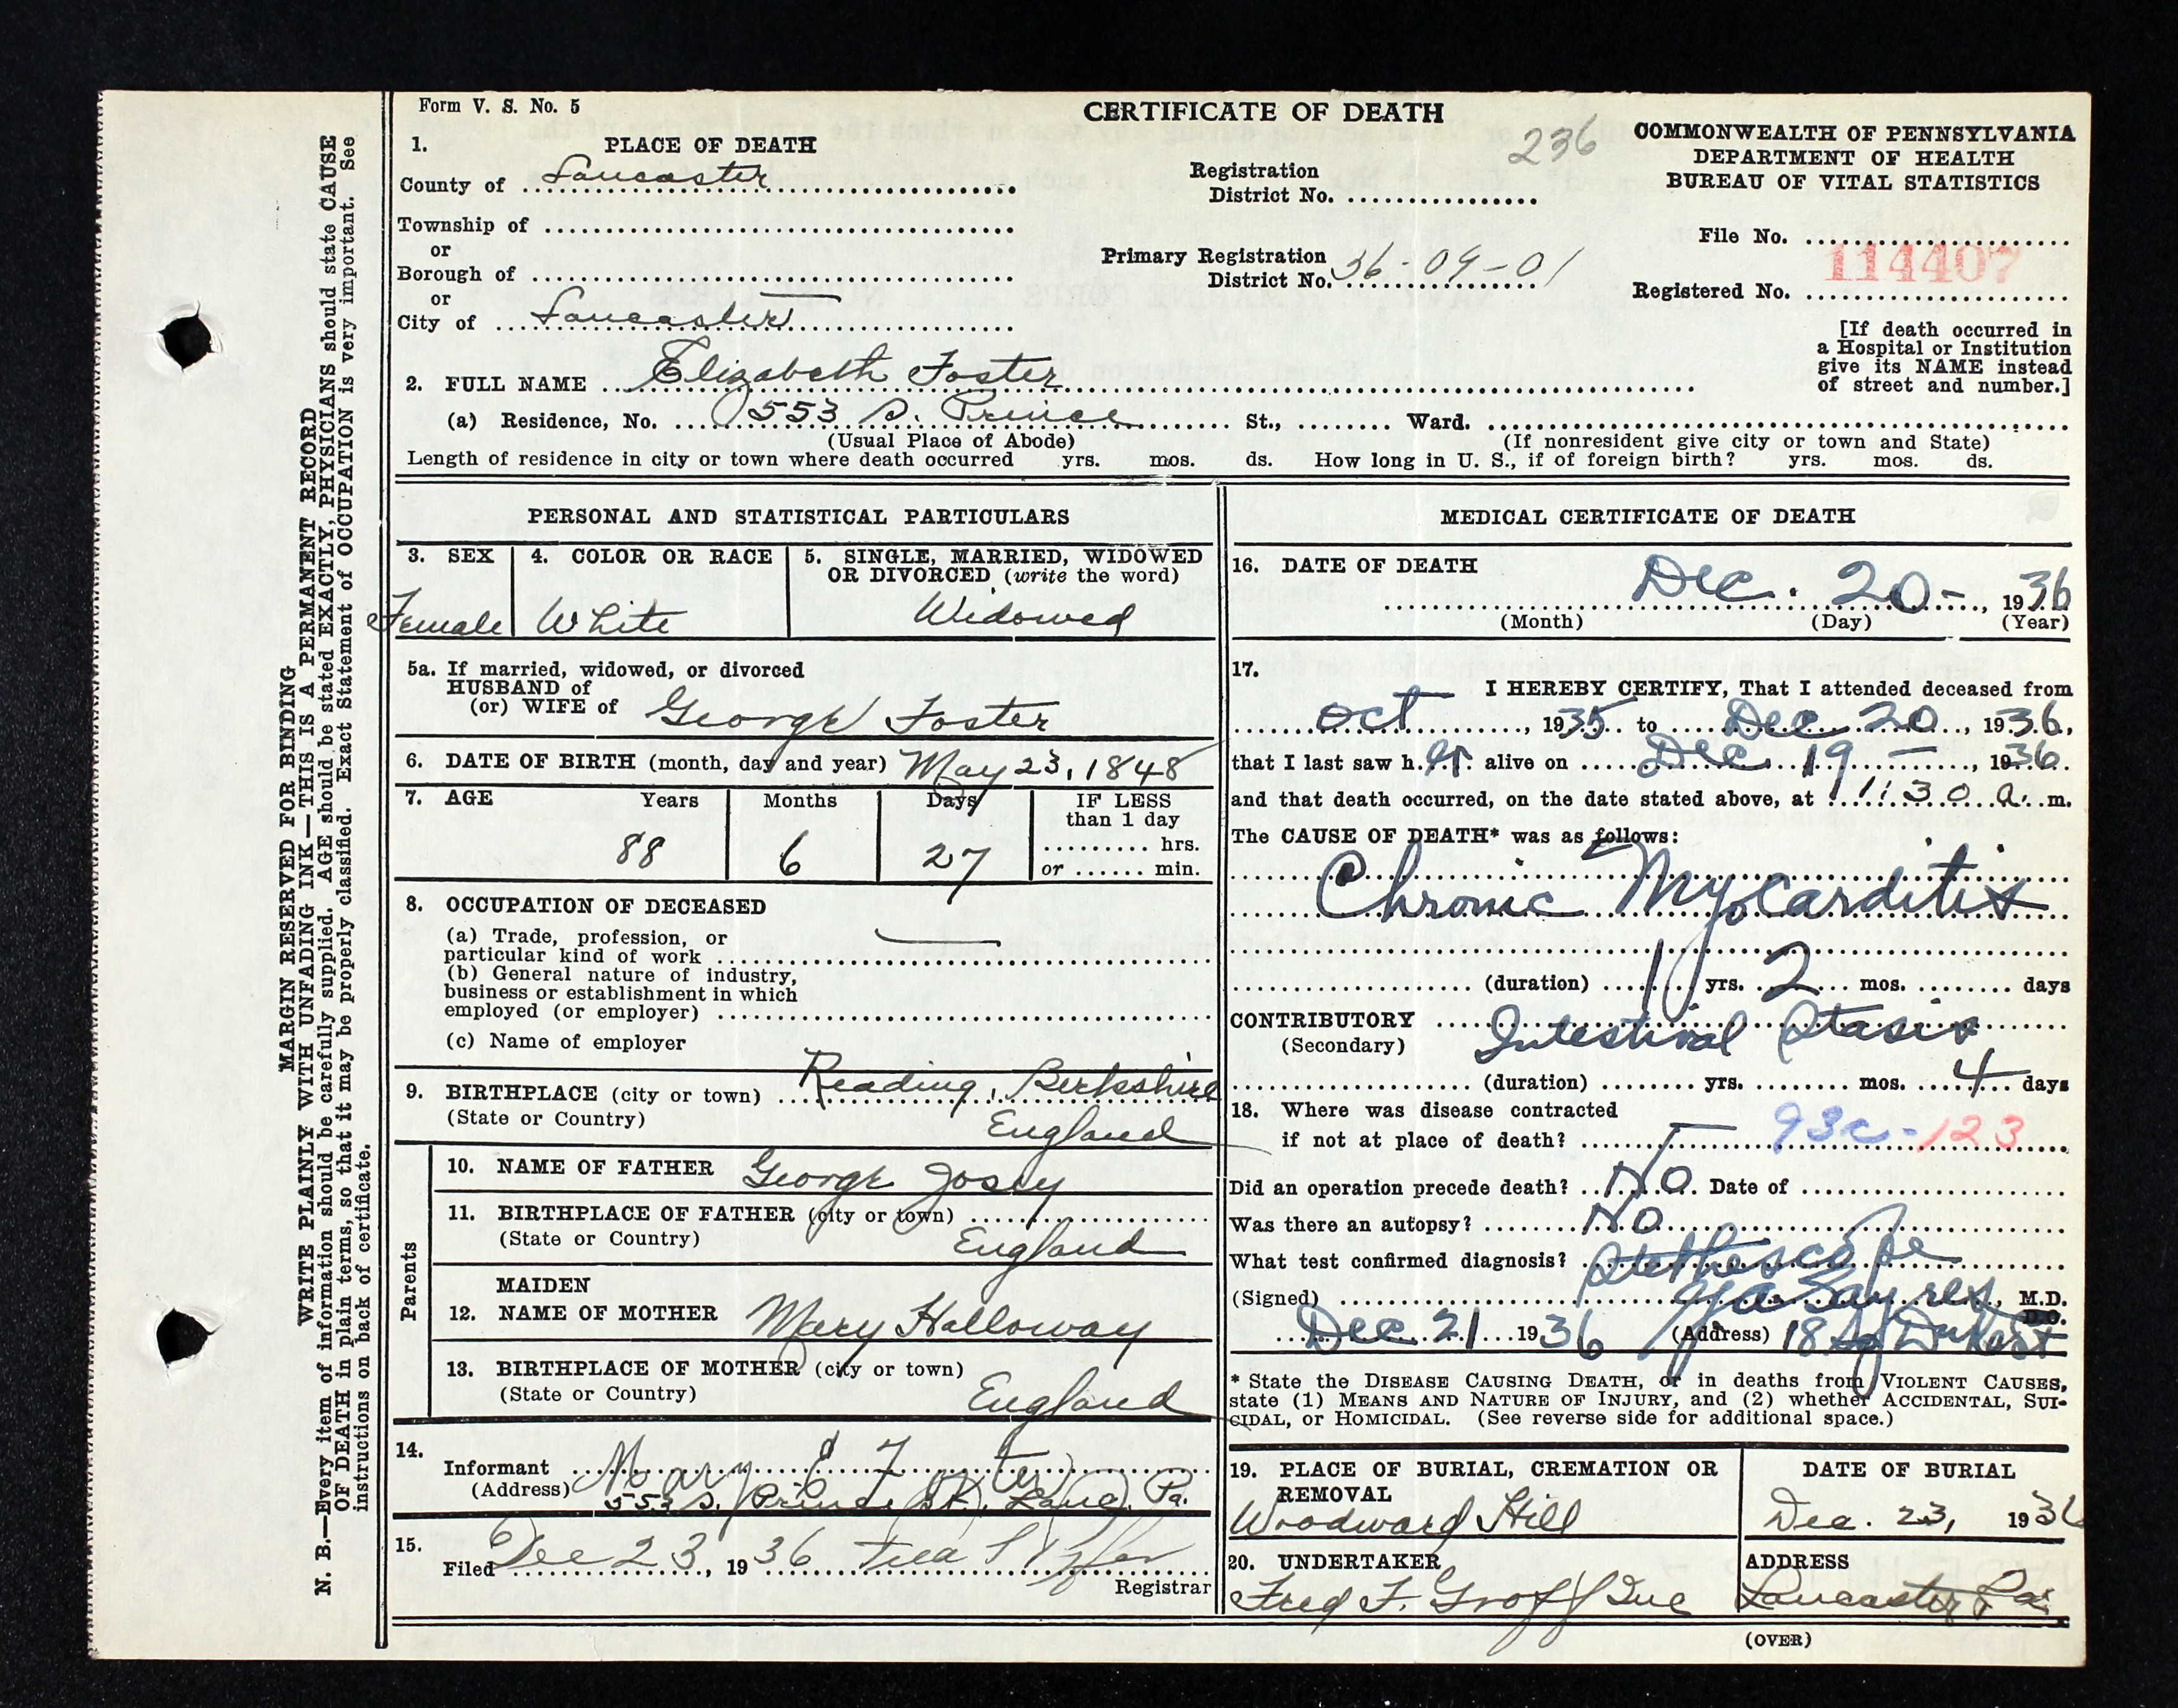 Form V. S. No. 5
CERTIFICATE OF DEATH
236
COMMONWEALTH OF PENNSYLVANIA
DEPARTMENT OF HEALTH
BUREAU OF VITAL STATISTICS
1. PLACE OF DEATH
County of Lancaster
Registration
District No.
Township of
or
Borough of
or
City of Lancaster
Primary Registration
District No. 36-09-01
File No.
114407
Registered No.
[If death occurred in
a Hospital or Institution
give its NAME instead
of street and number.]
2. FULL NAME Elizabeth Foster
(a) Residence, No. 553 S. Prince St., Ward.
(Usual Place of Abode) (If nonresident give city or town and State)
Length of residence in city or town where death occurred yrs. mos. ds. How long in U. S., if of foreign birth? yrs. mos. ds.
PERSONAL AND STATISTICAL PARTICULARS
3. SEX 4. COLOR OR RACE 5. SINGLE, MARRIED, WIDOWED
OR DIVORCED (write the word)
Female White Widowed
5a. If married, widowed, or divorced
HUSBAND of
(or) WIFE of George Foster
6. DATE OF BIRTH (month, day and year) May 23, 1848
7. AGE Years Months Days IF LESS
than 1 day
88 6 27 hrs.
or min.
8. OCCUPATION OF DECEASED
(a) Trade, profession, or
particular kind of work
(b) General nature of industry,
business or establishment in which
employed (or employer)
(c) Name of employer
9. BIRTHPLACE (city or town) Reading, Berksshire
(State or Country) England
Parents
10. NAME OF FATHER George Josey
11. BIRTHPLACE OF FATHER (city or town)
(State or Country) England
MAIDEN
12. NAME OF MOTHER Mary Halloway
13. BIRTHPLACE OF MOTHER (city or town)
(State or Country) England
14.
Informant Mary
(Address) 553 S. Prince St. Lanc. Pa.
15.
Filed Dec 23, 1936
Registrar
MEDICAL CERTIFICATE OF DEATH
16. DATE OF DEATH Dec. 20-, 1936
(Month) (Day) (Year)
17.
I HEREBY CERTIFY, That I attended deceased from
Oct, 1935 to Dec 20, 1936,
that I last saw her alive on Dec 19 -, 1936
and that death occurred, on the date stated above, at 11:30 a. m.
The CAUSE OF DEATH* was as follows:
Chronic Myocarditis
(duration) 1 yrs. 2 mos. days
CONTRIBUTORY Intestinal Stasis
(Secondary)
(duration) yrs. mos. 4 days
18. Where was disease contracted
if not at place of death? 93c-123
Did an operation precede death? No Date of
Was there an autopsy? No
What test confirmed diagnosis? Stethescope
(Signed) Sayres, M.D.
D.O.
Dec. 21 1936 (Address) 18 Duke St
* State the DISEASE CAUSING DEATH, or in deaths from VIOLENT CAUSES,
state (1) MEANS AND NATURE OF INJURY, and (2) whether ACCIDENTAL, SUI-
CIDAL, or HOMICIDAL. (See reverse side for additional space.)
19. PLACE OF BURIAL, CREMATION OR
REMOVAL
Woodward Hill
DATE OF BURIAL
Dec. 23, 1936
20. UNDERTAKER
Fred F. Groff Inc
ADDRESS
Lancaster Pa.
(OVER)
MARGIN RESERVED FOR BINDING
WRITE PLAINLY WITH UNFADING INK—THIS IS A PERMANENT RECORD
N. B.—Every item of information should be carefully supplied. AGE should be stated EXACTLY, PHYSICIANS should state CAUSE
OF DEATH in plain terms, so that it may be properly classified. Exact Statement of OCCUPATION is very important. See
instructions on back of certificate.